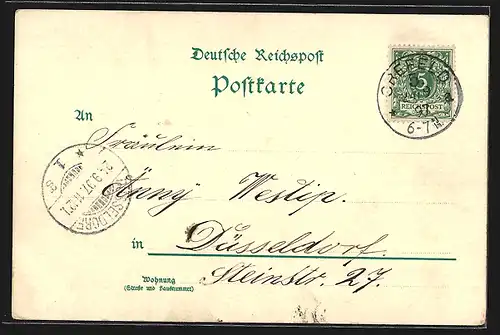 Deutsche Reichspost
Postkarte
CREFELD
5
REICHSPOST
6-7N.
An
Fräulein
Änny Westip.
in Düsseldorf.
Steinstr. 27.
Wohnung
(Straße und Hausnummer)
DÜSSELDORF
1